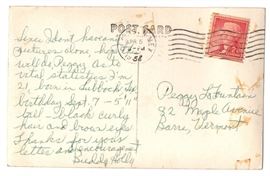 POST CARD
Since I don't have any
pictures alone, hope
will do Peggy. As to
vital statistics I'm
21, born in Lubbock
birthday Sept. 7 - 5'11"
tall - black curly
hair and brown eyes
Thanks for your
letter and encouragement
Buddy Holly
1958
Peggy
82 Maple Avenue
Barre, Vermont